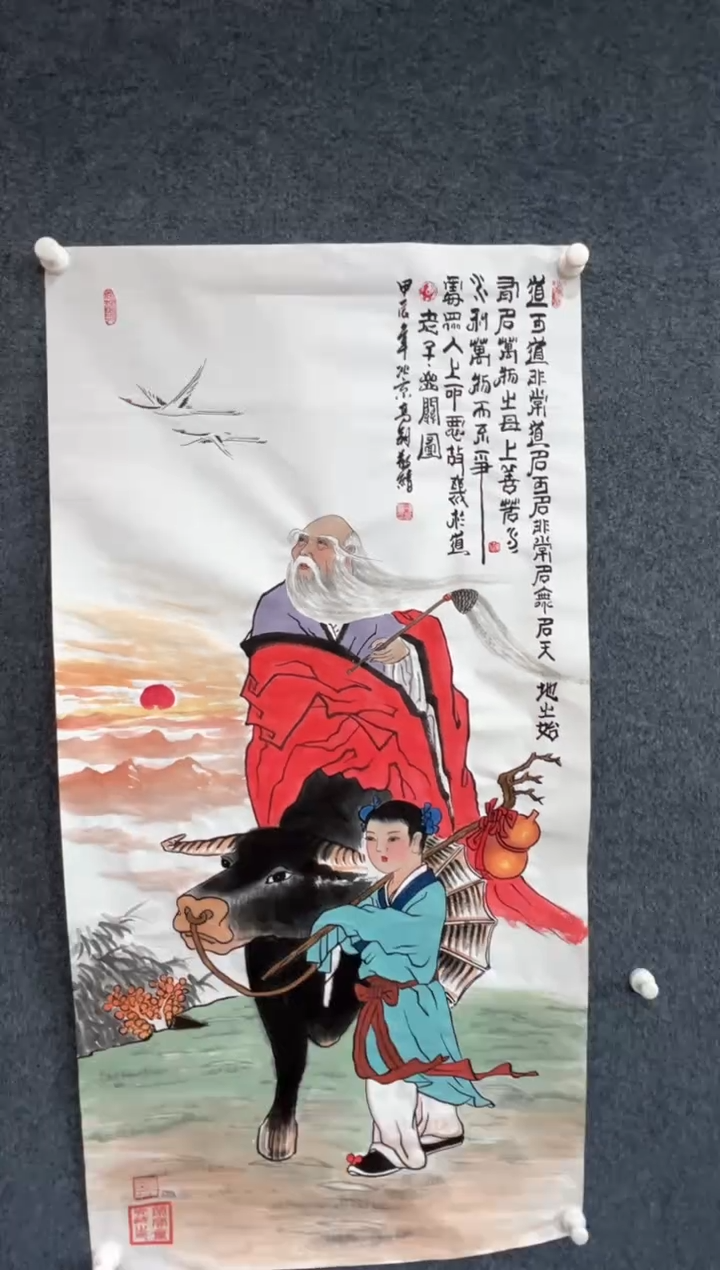 道可道非常道名可名非常名無名天地之始
有名萬物之母上善若水
水利萬物而不爭
處眾人之所惡故幾於道
老子關圖
甲辰年北京